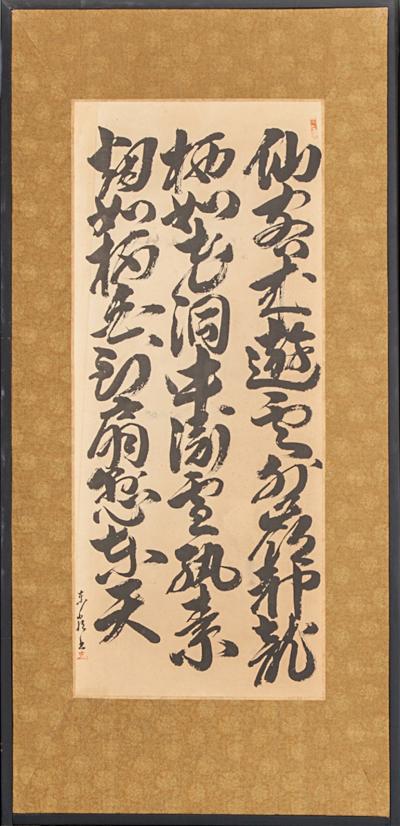 仙客来遊雲外巓神龍
栖如老洞中淵雪紈素
烟如柄到扇懸東天